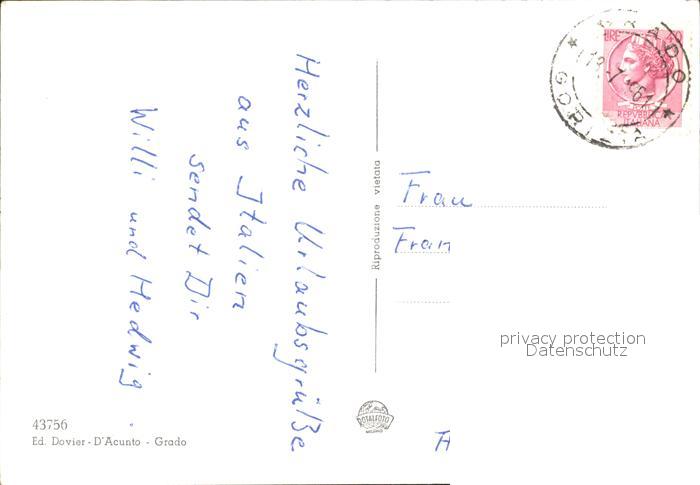 Herzliche Urlaubsgrüße
aus Italien
sendet Dir
Willi und Hedwig.
Riproduzione vietata
GRADO
GORIZIA
LIRE 40
REPVBBLICA
ITALIANA
Frau
Fran
privacy protection
Datenschutz
TOTALFOTO
MILANO
43756
Ed. Dovier - D'Acunto - Grado